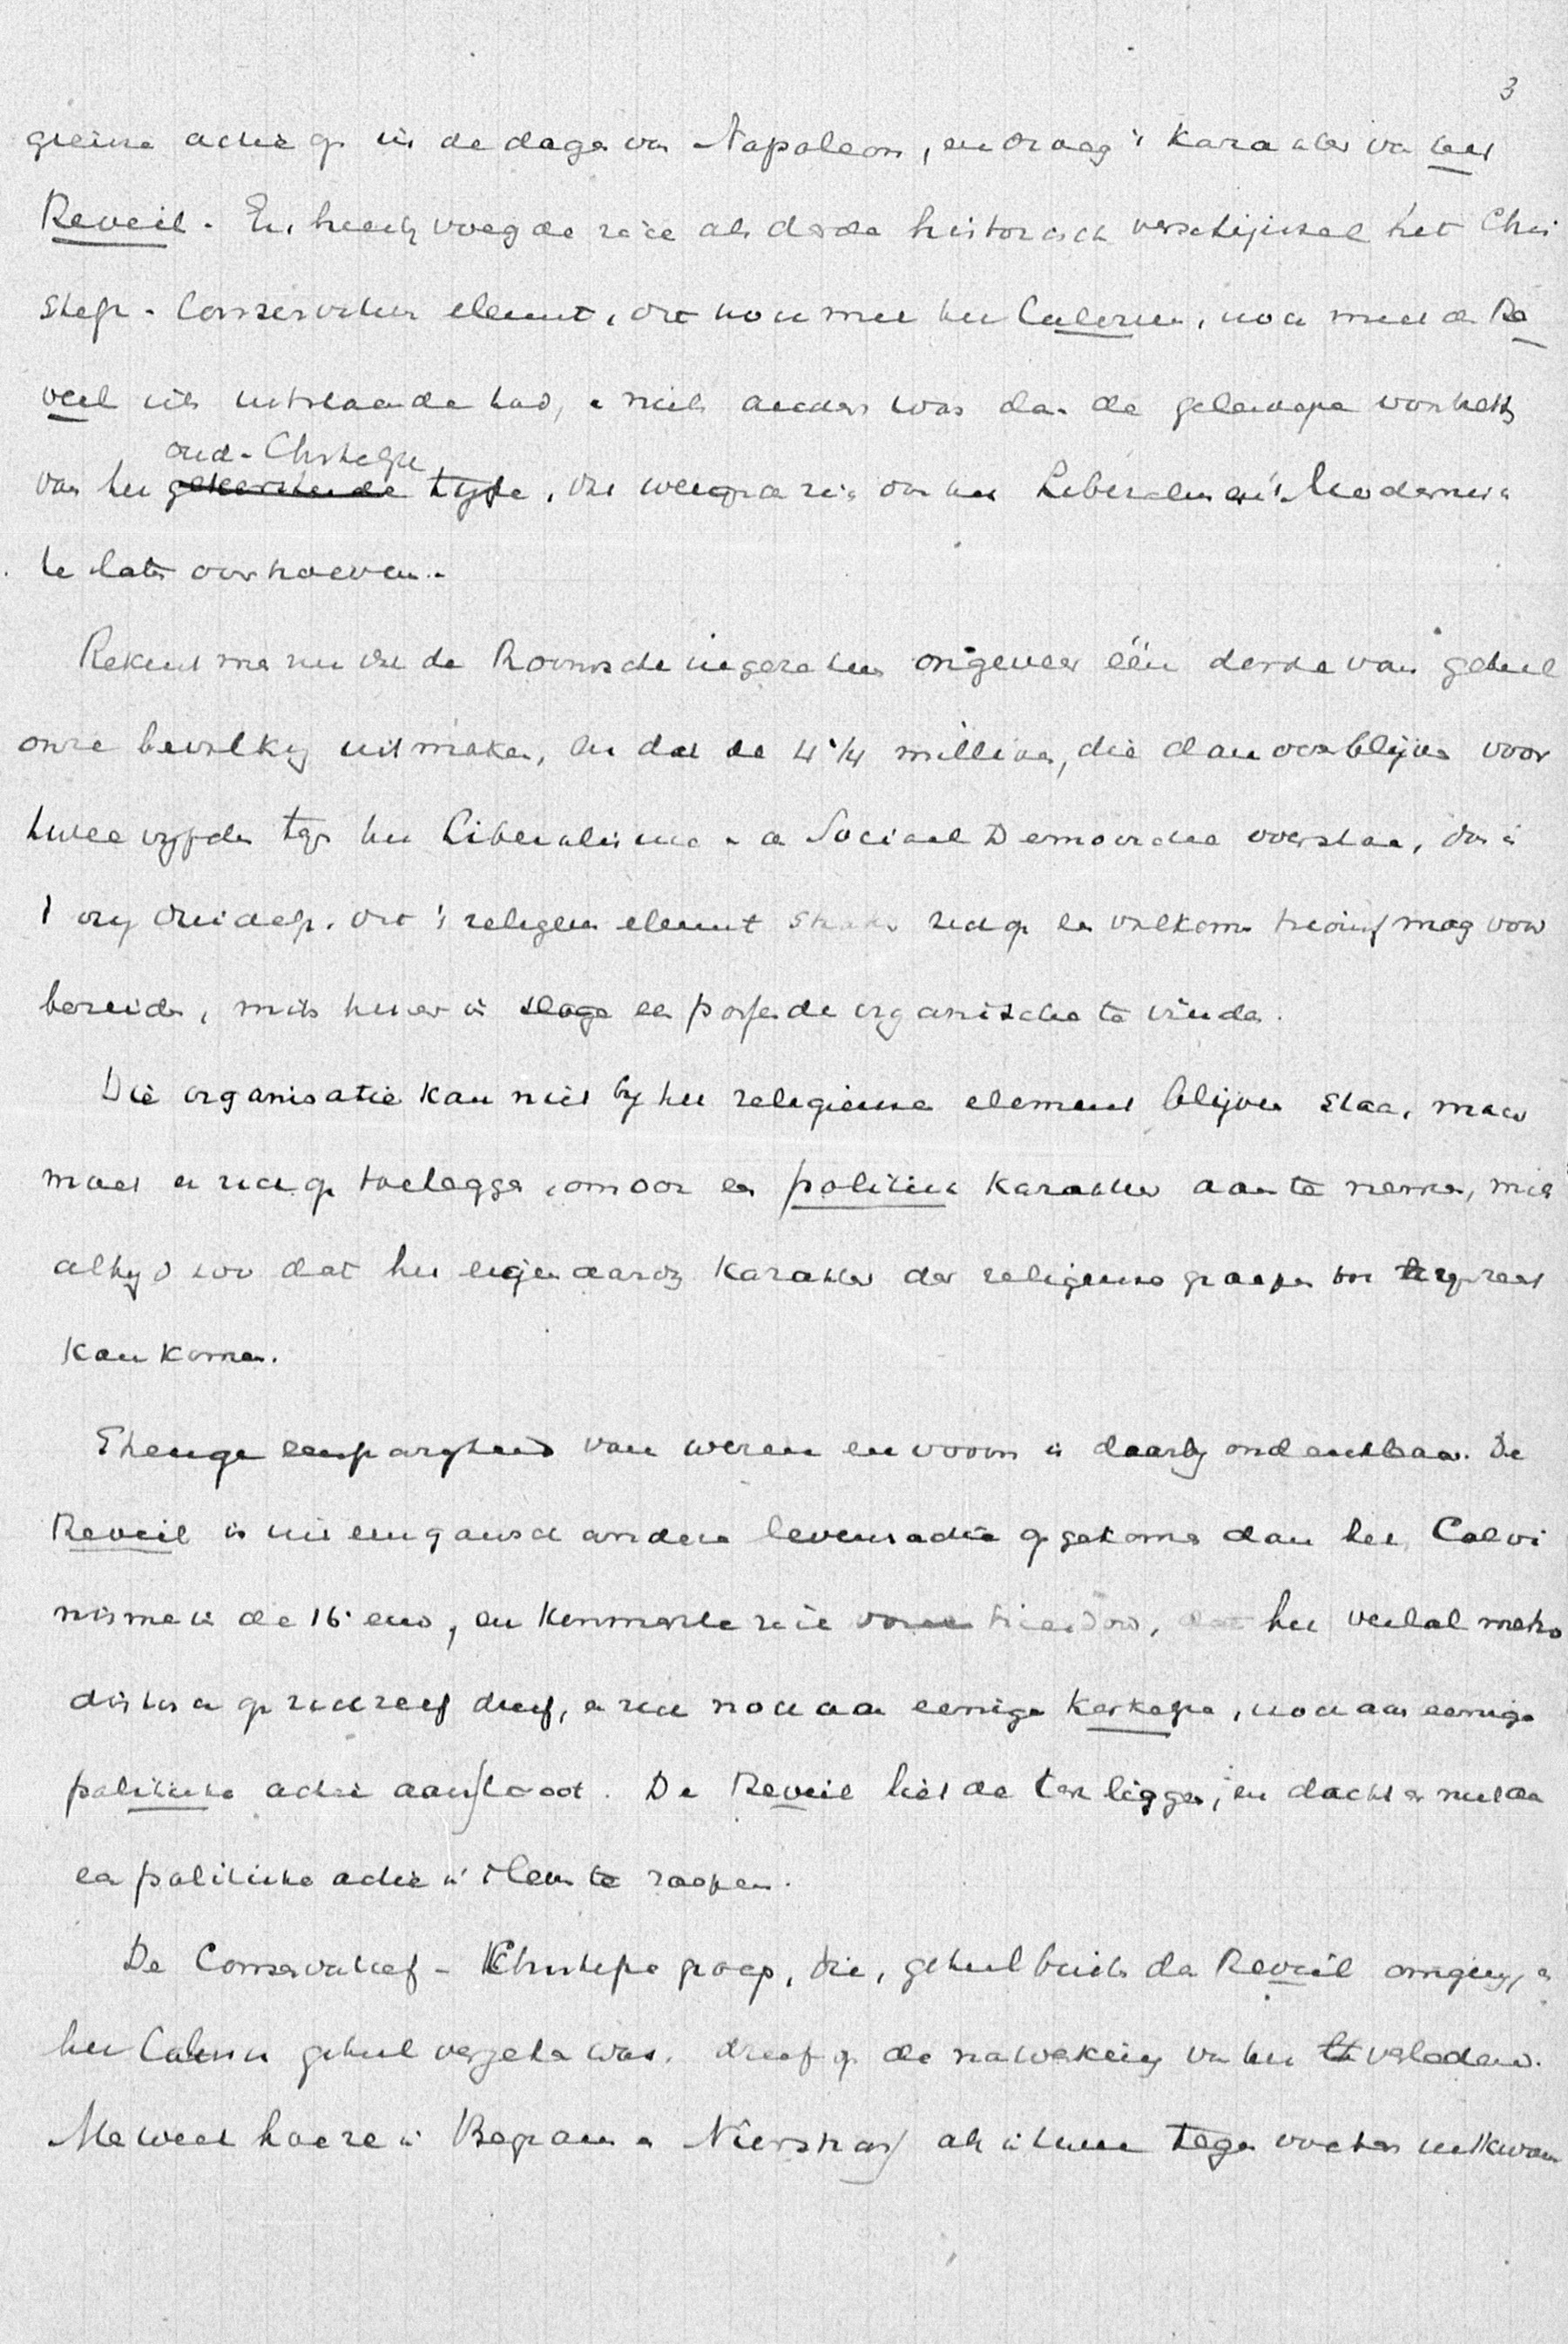 3
actie op in de dagen van Napoleon, en draagt 't karakter van het
Reveil. En hierbij voegde zich als derde historisch verschijnsel het Chris
telijk-Conservatieve element, dat noch met het Calvinisme, noch met de Re
veil iets uitstaande had, en niets anders was dan de
oud-Christelijke
van het gekerstende type, dat weigerde zich door het Liberalisme en 't Modernisme
te laten overhoeven.
Rekent men nu dat de Roomsche ingezetenen ongeveer één derde van geheel
onze bevolking uitmaken, en dat de 4 1/4 millioen, die dan overblijven voor
twee vijfden tegen het Liberalisme en de Sociaal Democratie overstaan, dan is
't vrij duidelijk, dat 't religieus element straks zich op een volkomen triomf mag voor
bereiden, mits het er in slage een passende organisatie te vinden.
Die organisatie kan niet bij het religieuse element blijven staan, maar
moet er zich op toeleggen, om ook een politiek karakter aan te nemen, mits
altijd zoo dat het eigenaardig karakter der religieuse groepen tot
kan komen.
Strenge eenparigheid van wezen en vorm is daarbij ondenkbaar. De
Reveil is uit een gansch andere levensactie opgekomen dan het Calvi
nisme in de 16e eeuw, en kenmerkte zich vooral hierdoor, dat het veelal metho
distisch op zichzelf dreef, en zich noch aan eenige kerkelijke, noch aan eenige
politieke actie aansloot. De Reveil liet de kerk liggen, en dacht er niet aan
een politieke actie in 't leven te roepen.
De Conservatief-Christelijke groep, die, geheel buiten de Reveil omging, en
het Calvinisme geheel vergeten was, dreef op de nawerking van het verleden.
Men weet hoe ze in Bogaers en Nierstrasz als in hun tegenvoeters uitkwam